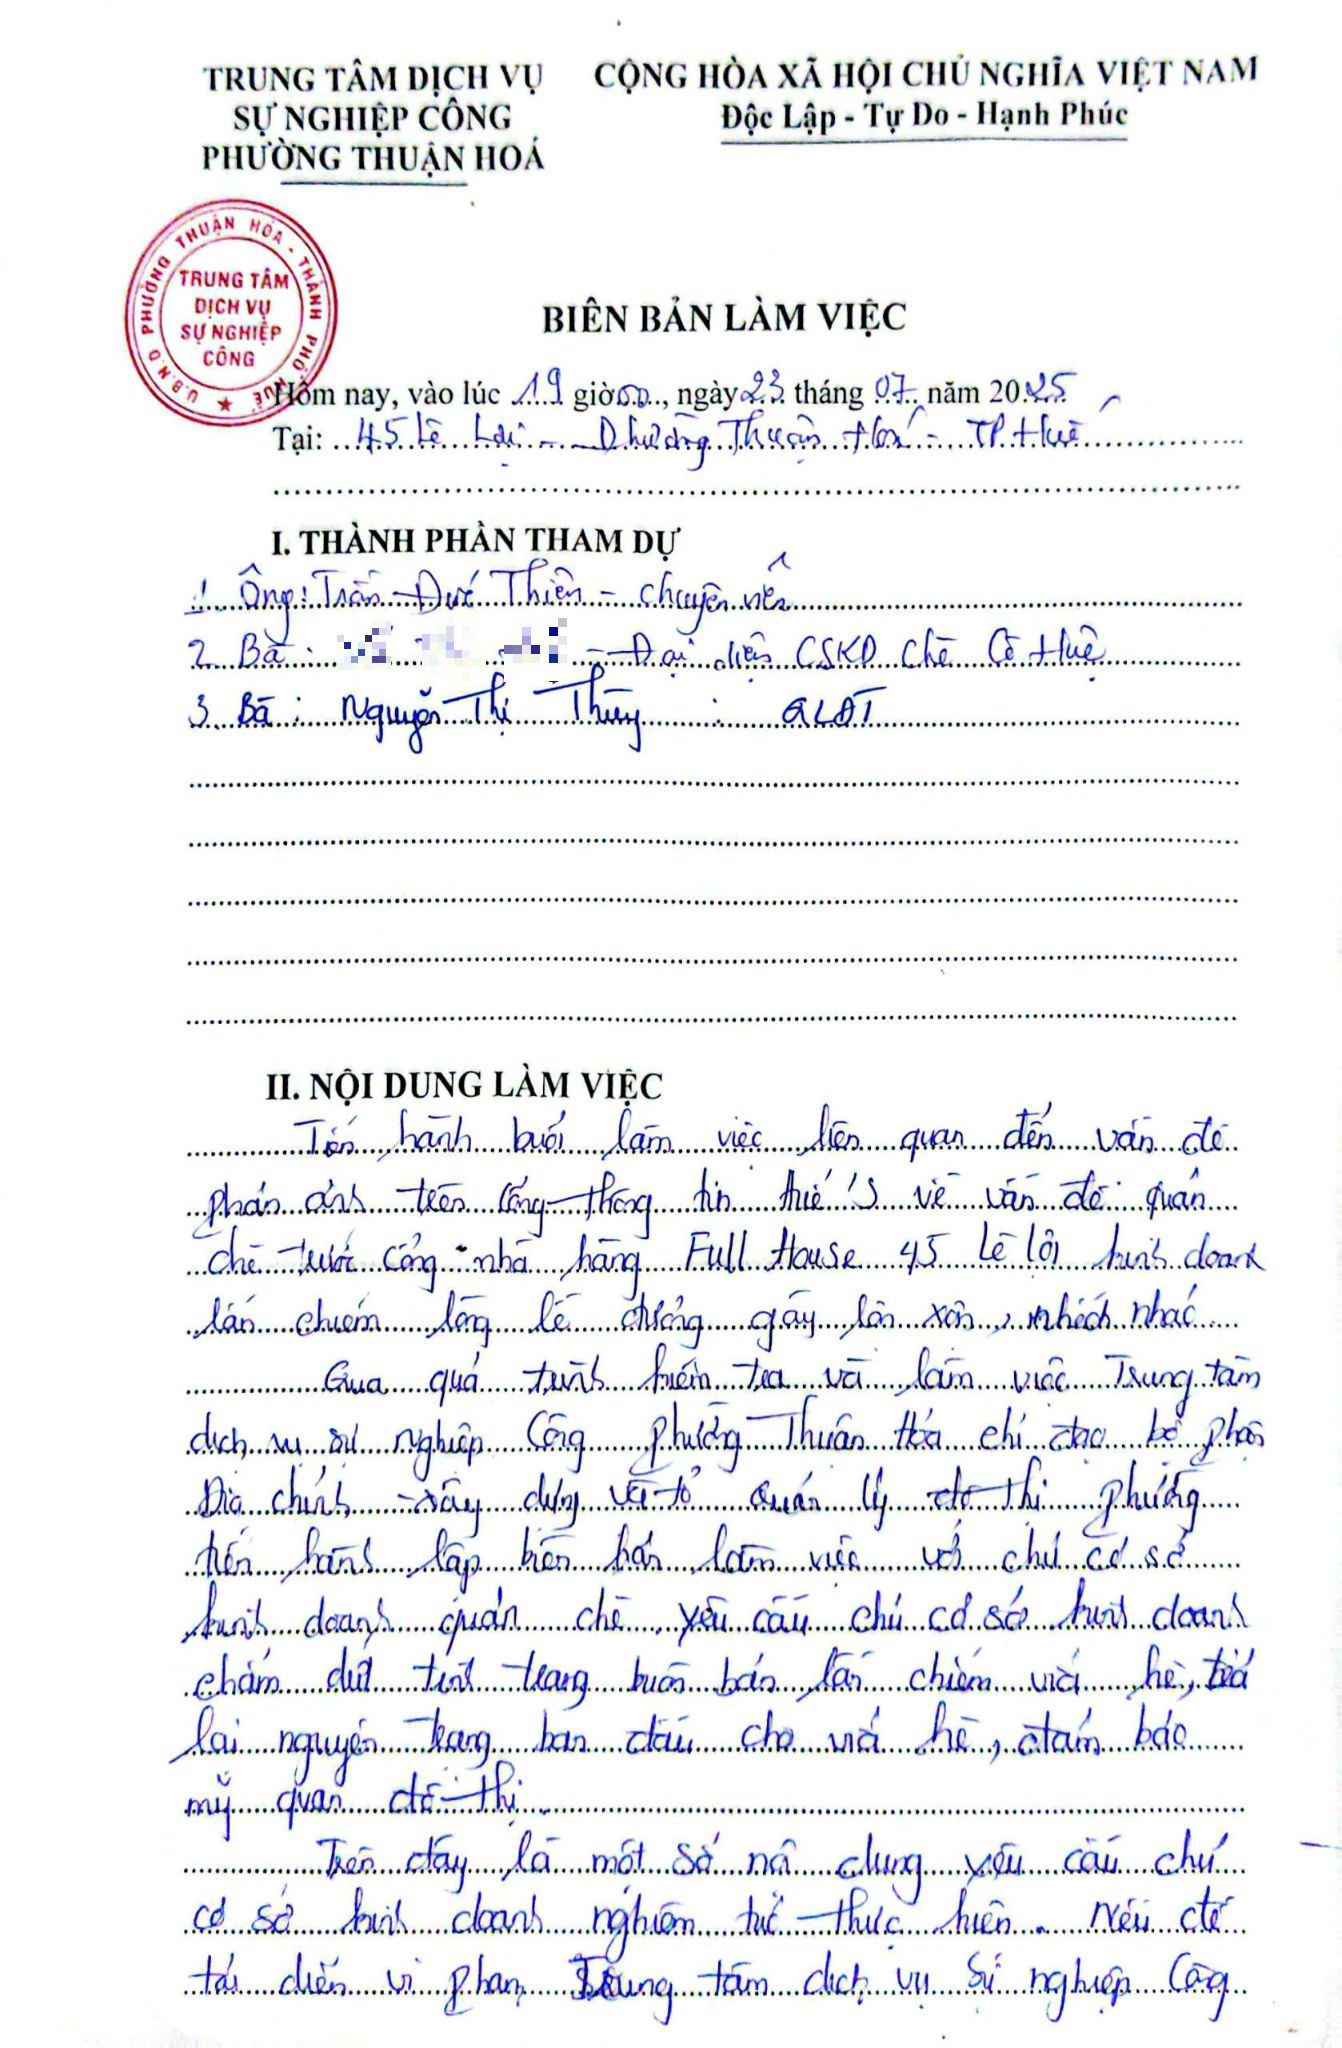 TRUNG TÂM DỊCH VỤ
SỰ NGHIỆP CÔNG
PHƯỜNG THUẬN HOÁ
CỘNG HÒA XÃ HỘI CHỦ NGHĨA VIỆT NAM
Độc Lập - Tự Do - Hạnh Phúc
U.B.N.D PHƯỜNG THUẬN HÓA - THÀNH PHỐ HUẾ
TRUNG TÂM
DỊCH VỤ
SỰ NGHIỆP
CÔNG
BIÊN BẢN LÀM VIỆC
Hôm nay, vào lúc 19 giờ 00, ngày 23 tháng 07 năm 2025
Tại: 45 Lê Lợi - Phường Thuận Hoá - TP Huế
I. THÀNH PHẦN THAM DỰ
1. Ông: Trần Đức Thiên - Chuyên viên
2. Bà: - Đại diện CSKD Chè Cô Huệ
3. Bà: Nguyễn Thị Thùy : QLĐT
II. NỘI DUNG LÀM VIỆC
Tiến hành buổi làm việc liên quan đến vấn đề
phản ánh trên cổng thông tin Huế S về vấn đề quán
chè trước cổng nhà hàng Full House 45 Lê Lợi kinh doanh
lấn chiếm lòng lề đường gây lộn xộn, nhếch nhác
Qua quá trình kiểm tra và làm việc Trung tâm
dịch vụ sự nghiệp Công phường Thuận Hóa chỉ đạo bộ phận
Địa chính - xây dựng và tổ quản lý đô thị phường
tiến hành lập biên bản làm việc với chủ cơ sở
kinh doanh quán chè, yêu cầu chủ cơ sở kinh doanh
chấm dứt tình trạng buôn bán lấn chiếm vỉa hè, trả
lại nguyên trạng ban đầu cho vỉa hè, đảm bảo
mỹ quan đô thị.
Trên đây là một số nội dung yêu cầu chủ
cơ sở kinh doanh nghiêm túc thực hiện. Nếu để
tái diễn vi phạm, Trung tâm dịch vụ sự nghiệp Công